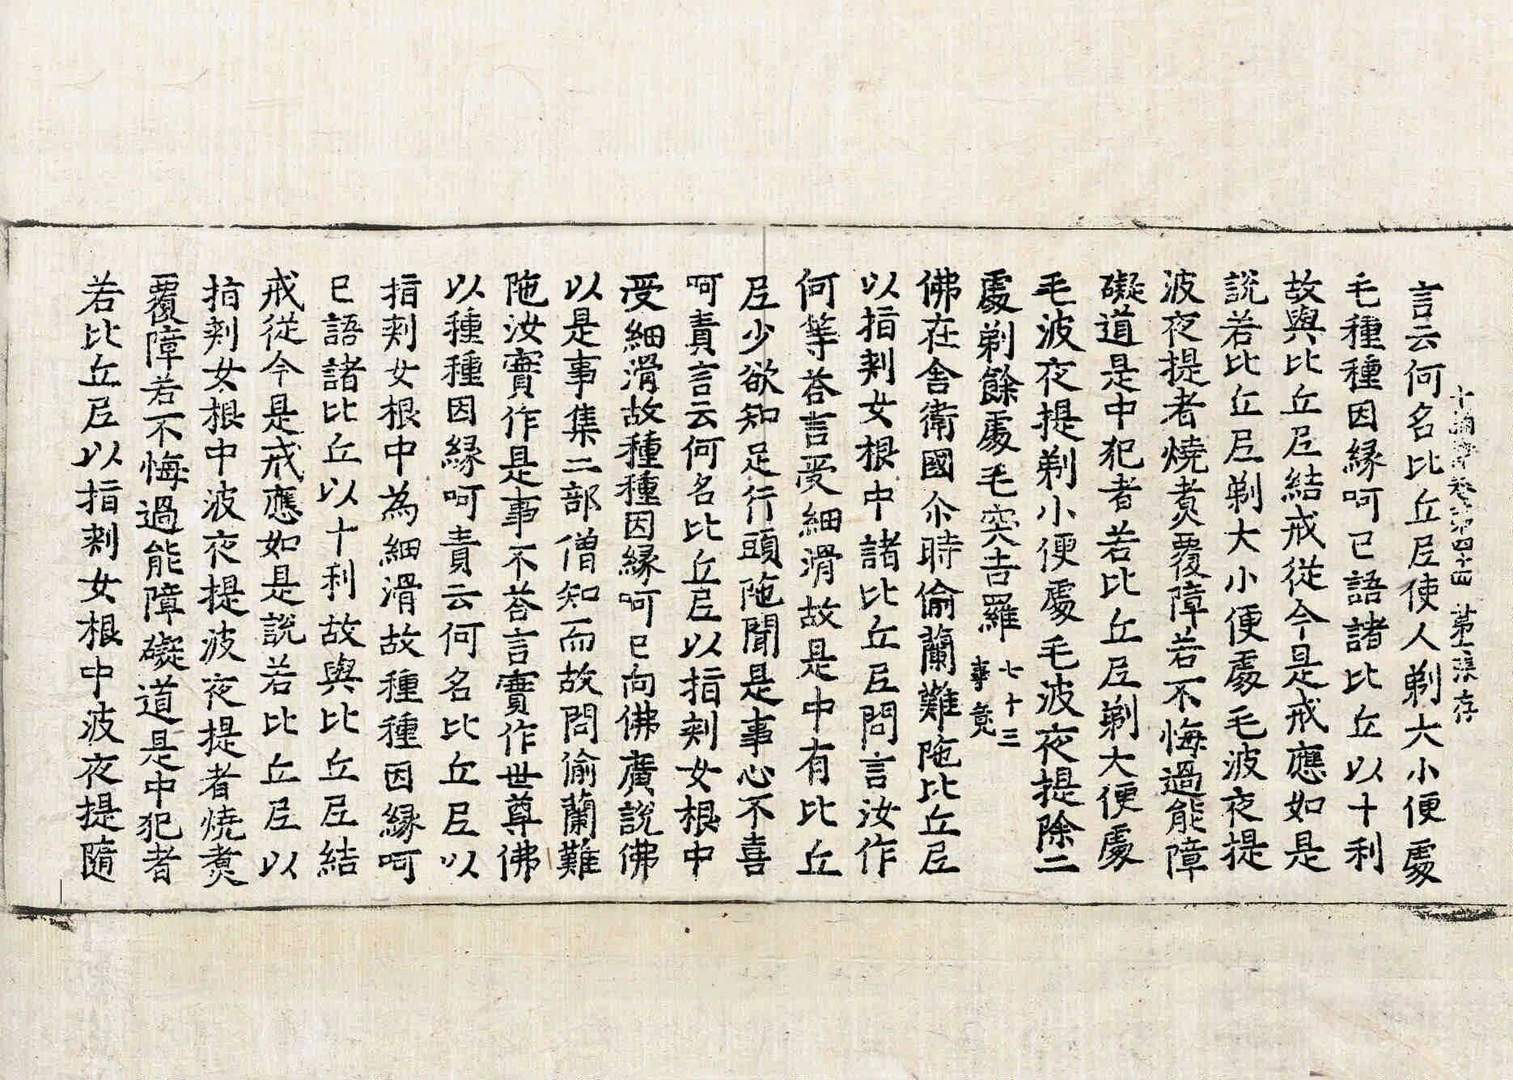 十誦律卷第四十四 第二張 存
言云何名比丘尼使人剃大小便處
毛種種因緣呵已語諸比丘以十利
故與比丘尼結戒從今是戒應如是
說若比丘尼剃大小便處毛波夜提
波夜提者燒煑覆障若不悔過能障
礙道是中犯者若比丘尼剃大便處
毛波夜提剃小便處毛波夜提除二
處剃餘處毛突吉羅七十三
事竟
佛在舍衛國尒時偷蘭難陁比丘尼
以指刾女根中諸比丘尼問言汝作
何等荅言受細滑故是中有比丘
尼少欲知足行頭陁聞是事心不喜
呵責言云何名比丘尼以指刾女根中
受細滑故種種因緣呵已向佛廣說佛
以是事集二部僧知而故問偷蘭難
陁汝實作是事不荅言實作世尊佛
以種種因緣呵責云何名比丘尼以
指刾女根中為細滑故種種因緣呵
已語諸比丘以十利故與比丘尼結
戒從今是戒應如是說若比丘尼以
指刾女根中波夜提波夜提者燒煑
覆障若不悔過能障礙道是中犯者
若比丘尼以指刾女根中波夜提隨